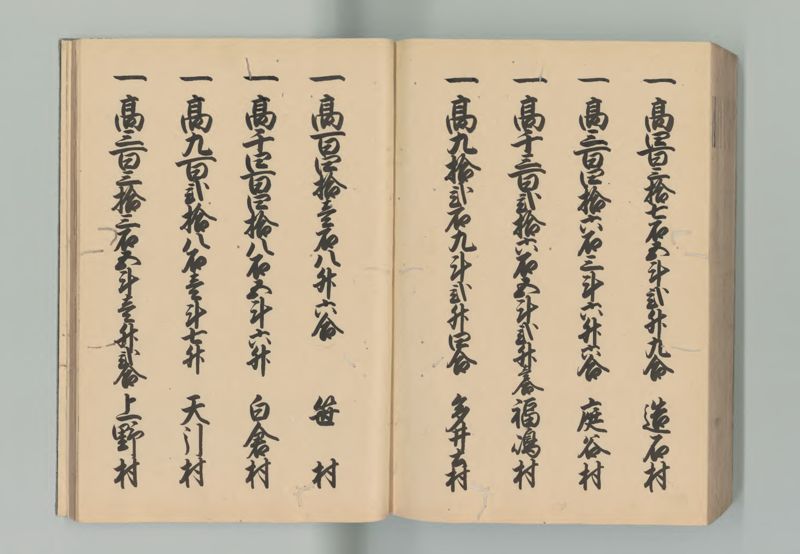 一 高四百三拾七石五斗弐升九合 造石村
一 高三百四拾六石三斗六升六合 庭谷村
一 高千三百弐拾六石五斗弐升壱合 福嶋村
一 高九拾弐石九斗弐升四合 多井戸村
一 高百四拾壱石八升六合 笹村
一 高千四百四拾八石五斗六升 白倉村
一 高九百弐拾八石壱斗七升 天引村
一 高三百三拾三石五斗壱升弐合 上野村